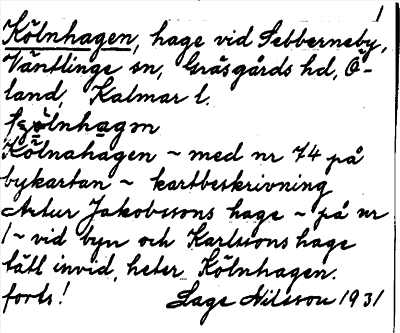 1
Kölnhagen, hage vid Sebberneby,
Väntlinge sn, Gräsgårds hd, Ö-
land, Kalmar l.
Kölnahagen ~ med nr 74 på
bykartan ~ kartbeskrivning
Artur Jakobssons hage ~ på nr
1 ~ vid byn och Karlssons hage
tätt invid, heter Kölnhagen.
forts! Sage Nilsson 1931